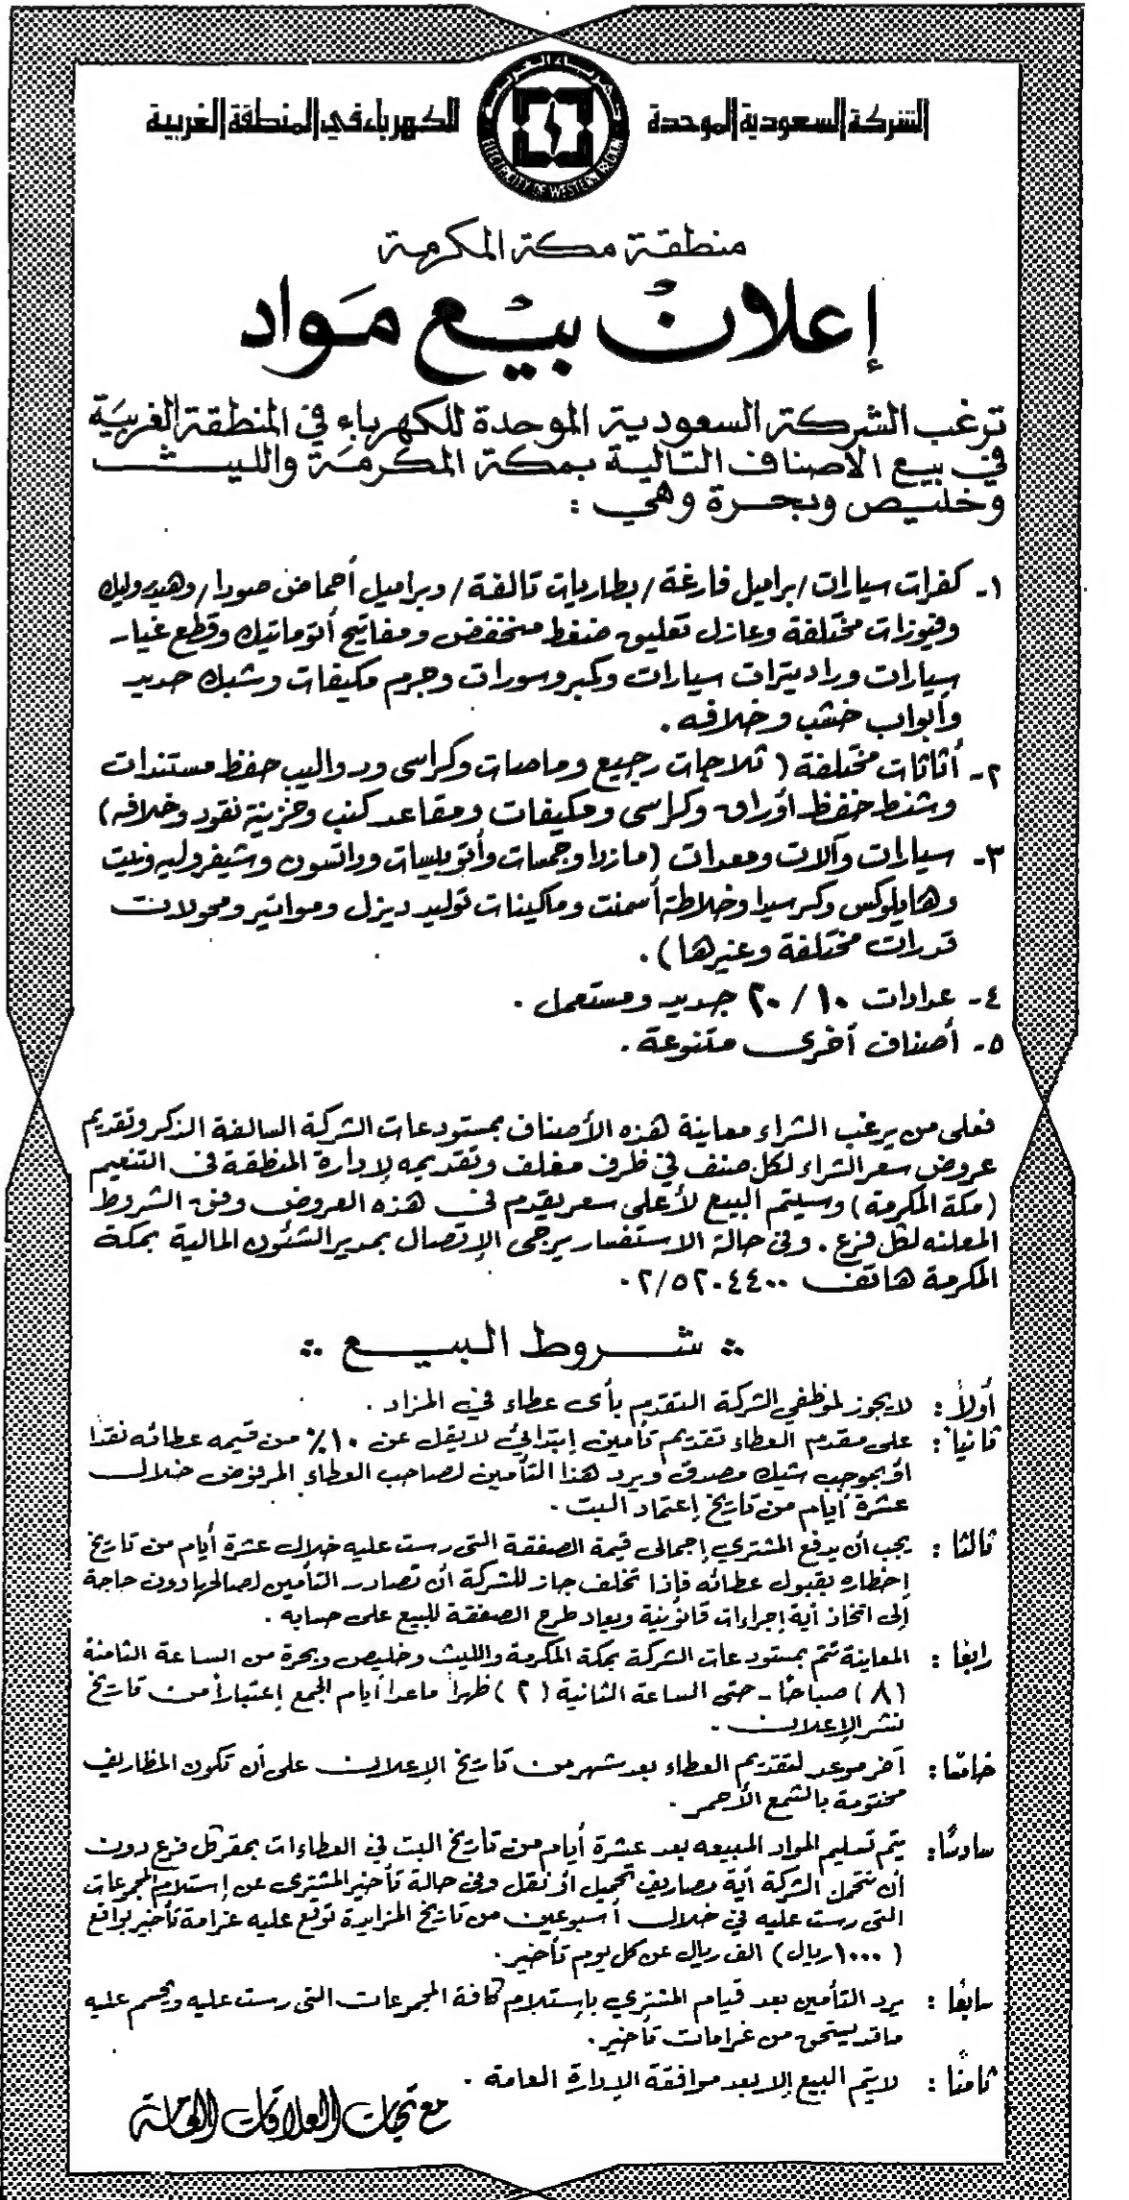 الشركة السعودية الموحدة للكهرباء في المنطقة الغربية
كهرباء الغربية
ELECTRICITY OF WESTERN REGION
منطقة مكة المكرمة
إعلان بيع مواد
ترغب الشركة السعودية الموحدة للكهرباء في المنطقة الغربية
في بيع الأصناف التالية بمكة المكرمة والليث
وخليص وبحرة وهي :
١- كفرات سيارات / براميل فارغة / بطاريات تالفة / وبراميل أحماض صودا / وهيدروليك
وفيوزات مختلفة وعازل تعليق ضغط منخفض ومفاتيح أتوماتيك وقطع غيار
سيارات وراديترات سيارات وكمبروسورات وجرم مكيفات وشبك حديد
وأبواب خشب وخلافه .
٢- أثاثات مختلفة ( ثلاجات رجيع وماصات وكراسى ودواليب حفظ مستندات
وشنط حفظ أوراق وكراسى ومكيفات ومقاعد كنب وخزينة نقود وخلافه )
٣- سيارات وآلات ومعدات (مازدا وجمسات وأتوبيسات وداتسون وشيفروليه ونيت
وهايلوكس وكرسيدا وخلاطة أسمنت وماكينات توليد ديزل ومواتير ومحولات
قدرات مختلفة وغيرها ) .
٤- عدادات ١٠ / ٢٠ جديد ومستعمل .
٥- أصناف أخرى متنوعة .
فعلى من يرغب الشراء معاينة هذه الأصناف بمستودعات الشركة السالفة الذكر وتقديم
عروض سعر الشراء لكل صنف في ظرف مغلف وتقديمه لإدارة المنطقة في التنعيم
(مكة المكرمة ) وسيتم البيع لأعلى سعر يقدم في هذه العروض وفق الشروط
المعلنه لكل فرع . وفي حالة الاستفسار يرجى الإتصال بمدير الشئون المالية بمكة
المكرمة هاتف ٠٢/٥٢٠٤٤٠٠
شروط البيع
أولاً : لايجوز لموظفي الشركة التقدم بأى عطاء في المزاد .
ثانياً : على مقدم العطاء تقديم تأمين إبتدائي لايقل عن ١٠٪ من قيمه عطائه نقداً
أو بموجب شيك مصدق ويرد هذا التأمين لصاحب العطاء المرفوض خلال
عشرة أيام من تاريخ إعتماد البت .
ثالثاً : يجب أن يدفع المشتري إجمالى قيمة الصفقة التى رست عليه خلال عشرة أيام من تاريخ
إخطاره بقبول عطائه فإذا تخلف جاز للشركة أن تصادر التأمين لصالحها دون حاجة
إلى اتخاذ أية إجراءات قانونية ويعاد طرح الصفقة للبيع على حسابه .
رابعاً : المعاينة تتم بمستودعات الشركة بمكة المكرمة والليث وخليص وبحرة من الساعة الثامنة
(٨) صباحاً - حتى الساعة الثانية (٢) ظهراً ماعدا أيام الجمع إعتباراً من تاريخ
نشر الإعلان .
خامساً : آخر موعد لتقديم العطاء بعد شهر من تاريخ الإعلان على أن تكون المظاريف
مختومة بالشمع الأحمر .
سادساً : يتم تسليم المواد المبيعه بعد عشرة أيام من تاريخ البت في العطاءات بمقر كل فرع دون
أن تتحمل الشركة أية مصاريف تحميل أو نقل وفي حالة تأخير المشترى عن إستلام المجموعات
التى رست عليه في خلال أسبوعين من تاريخ المزايدة توقع عليه غرامة تأخير بواقع
(١٠٠٠ ريال) الف ريال عن كل يوم تأخير .
سابعاً : يرد التأمين بعد قيام المشتري بإستلام كافة المجموعات التى رست عليه ويحسم عليه
ماقد يستحق من غرامات تأخير .
ثامناً : لايتم البيع إلا بعد موافقة الإدارة العامة .
مع تحيات العلاقات العامة